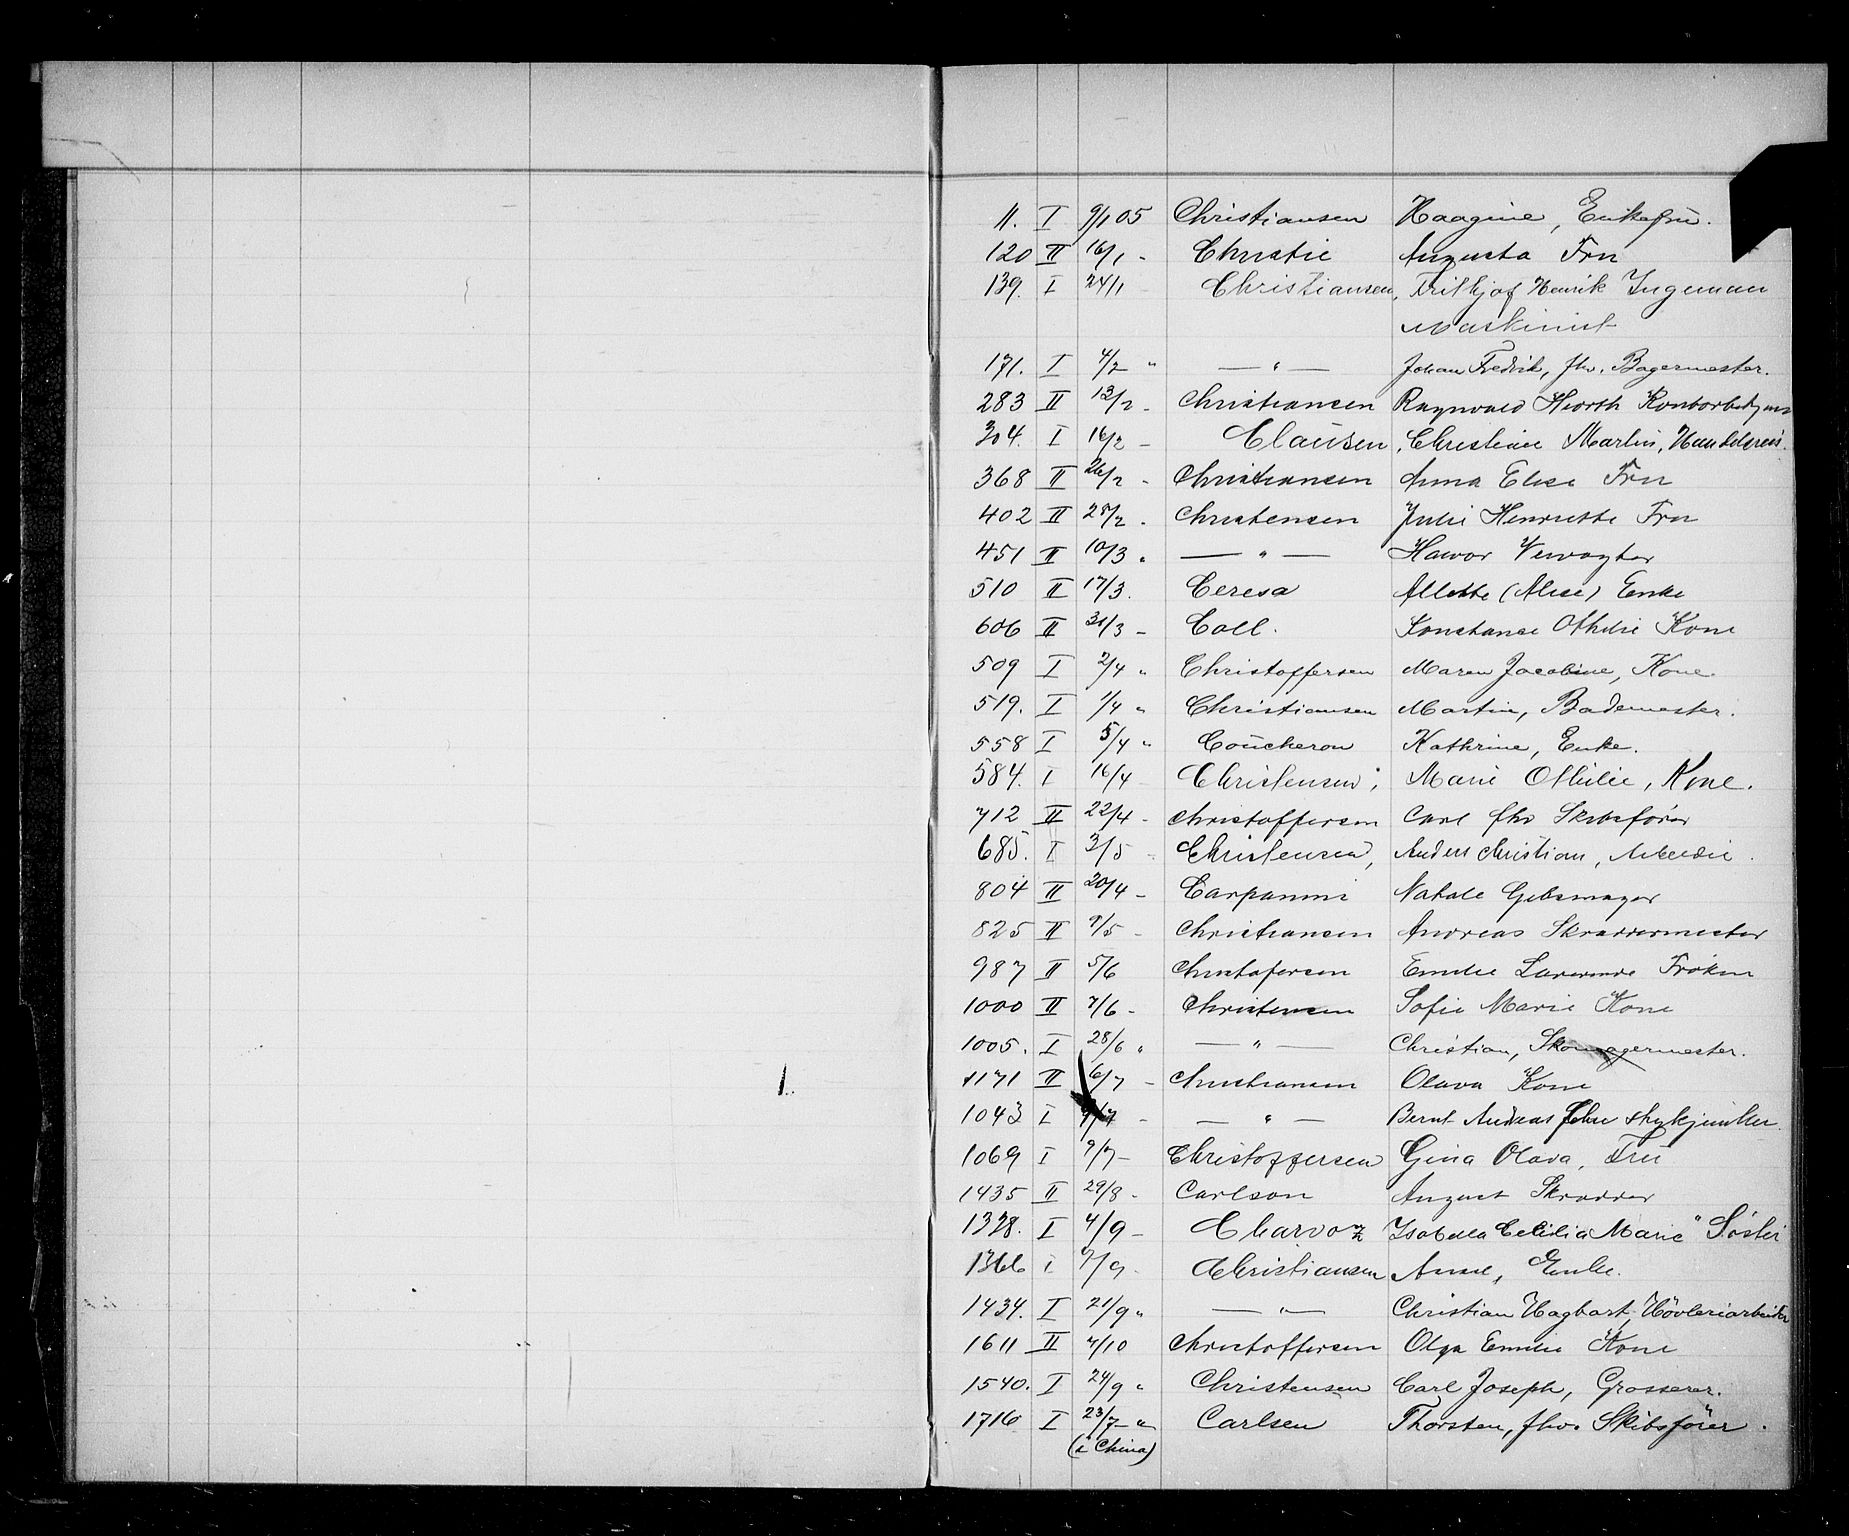 11. I 9/1 05 Christiansen Haagine, Enkefru.
120 II 16/1 - Christie Augusta Fru
139. I 24/1 - Christiansen, Frithjof Henrik Ingeman
Maskinist
171. I 4/2 " — " — Johan Fredrik, fhv. Bagermester.
283 II 13/2 - Christiansen Ragnvald Hiorth
304. I 16/2 - Clausen, Christian Martin,
368 II 26/2 - Christiansen Anna Elise Fru
402 II 28/2 - Christensen Julie Henriette Fru
451 II 10/3 " — " — Havor Vervagter
510 II 17/3. Ceresa Allette (Alise) Enke
606 II 31/3 - Coll. Konstanse Othilie Kone
509 I 2/4 " Christoffersen Maren Jacobine, Kone.
519. I 1/4 " Christiansen Martin, Bademester.
558 I 5/4 " Coucheron Kathrine, Enke.
584. I 16/4 Christensen, Marie Othilie, Kone.
712 II 22/4 - Christoffersen Carl fhv Skibsfører
685. I 3/5 - Christensen, Anders Christian,
804 II 20/4 - Carpanini Natale Gibsmager
825 II 9/5 - Christiansen Andreas Skraddermester
987 II 5/6 Christofersen Emilie Laverende Frøken
1000 II 7/6 - Christensen Sofie Marie Kone
1005. I 28/6 " — " — Christian, Skomagermester.
1171 II 6/7 - Christiansen Olava Kone
1043 I 9/7 - — " — Bernt Andreas
1069 I 9/7 - Christoffersen Gina Olava, Fru
1435 II 29/8 - Carlson August Skradder
1328. I 4/9 - Charvoz Isabella Celilia Marie "Søster
1366 I 7/9 - Christiansen Anne, Enke.
1434. I 21/9 " — " — Christian Hagbart, Høvleriarbeider
1611 II 7/10 Christoffersen Olga Emilie Kone
1540. I 24/9 " Christensen Carl Joseph, Grosserer.
1716 I 23/7 - " Carlsen Thorsten, fhv. Skibsfører.
(i China)
1.